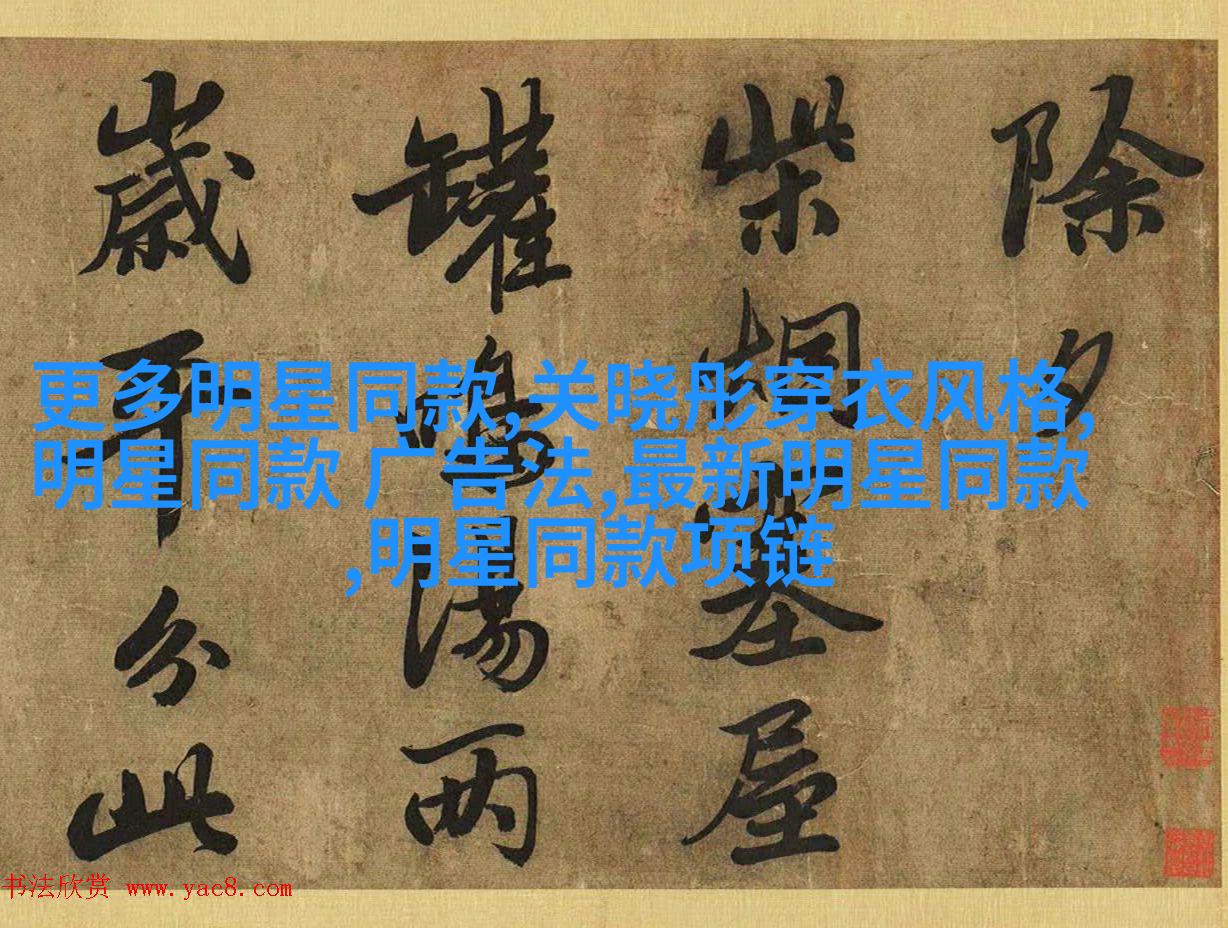 除夕
柴烟屋
罐鳴湯兩
歲平分此
更多明星同款,关晓彤穿衣风格,
明星同款 广告法,最新明星同款
,明星同款项链
书法欣赏 www.yac8.com